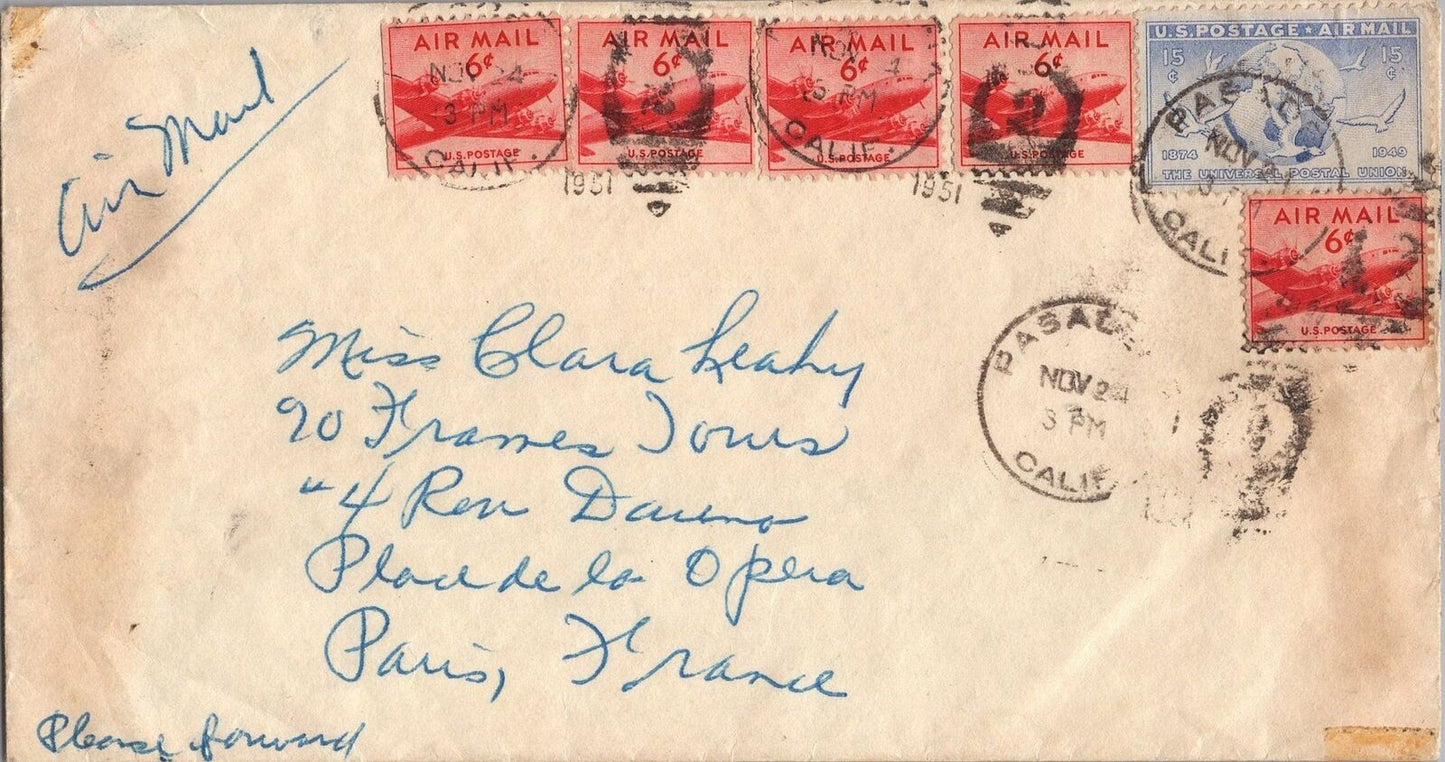 Air Mail
AIR MAIL
6¢
U.S. POSTAGE
AIR MAIL
6¢
U.S. POSTAGE
AIR MAIL
6¢
U.S. POSTAGE
AIR MAIL
6¢
U.S. POSTAGE
U.S. POSTAGE ★ AIR MAIL
15¢ 15¢
1874 1949
THE UNIVERSAL POSTAL UNION
AIR MAIL
6¢
U.S. POSTAGE
NOV 24
3 PM
CALIF.
1951
2
NOV
PM
CALIF.
1951
2
NOV
CALIF
NOV 24
3 PM
CALIF
Miss Clara Leahy
90 Frames Tours
4 Ren
Place de la Opera
Paris, France
Please forward